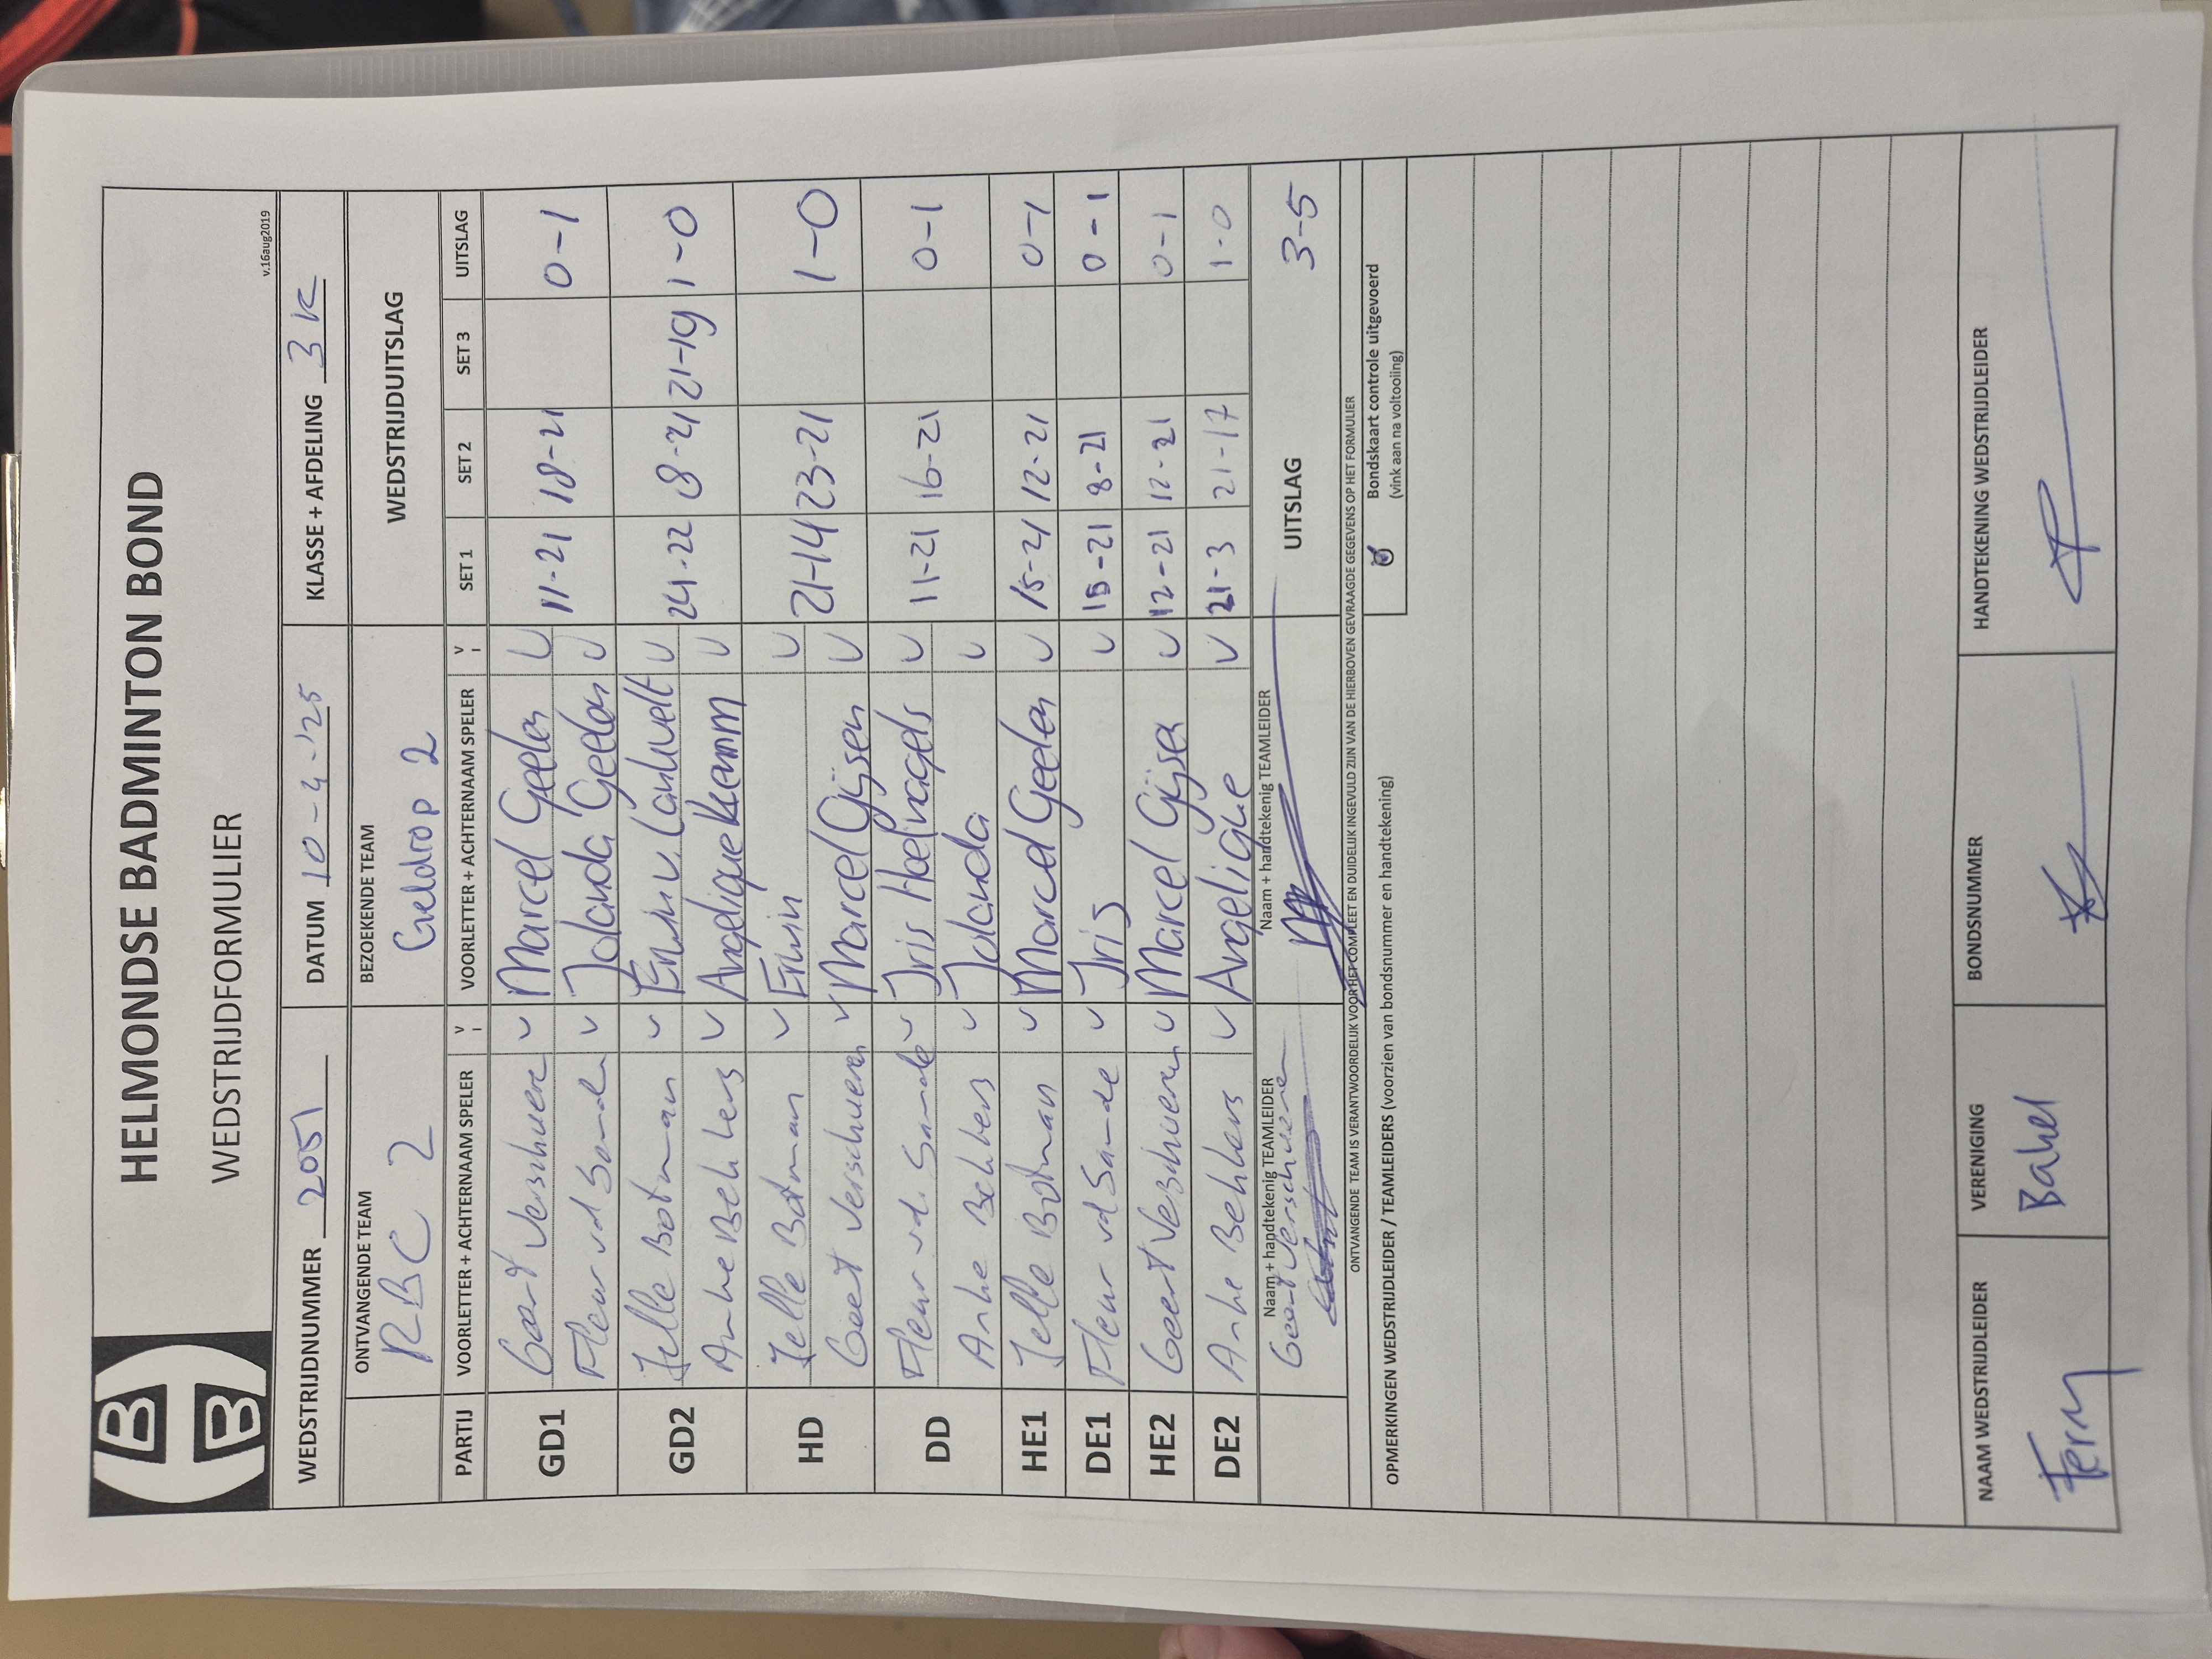 HELMONDSE BADMINTON BOND
WEDSTRIJDFORMULIER
v.16aug2019
WEDSTRIJDNUMMER 2051 DATUM 10-4-'25 KLASSE + AFDELING 3K
ONTVANGENDE TEAM BEZOEKENDE TEAM WEDSTRIJDUITSLAG
RBC 2 Geldrop 2
PARTIJ VOORLETTER + ACHTERNAAM SPELER V VOORLETTER + ACHTERNAAM SPELER V SET 1 SET 2 SET 3 UITSLAG
GD1 Geert Verschueren v Marcel Geelen v 11-21 18-21 0-1
Fleur vd Sande v Jolanda Geelen v
GD2 Jelle Botman v Erwin v. Lanhvelt v 24-22 8-21 21-19 1-0
Anke Behkers v Angelique Kramm v
HD Jelle Botman v Erwin v 21-14 23-21 1-0
Geert Verschueren v Marcel Gijsen v
DD Fleur vd. Sande v Iris Hoelnagels v 11-21 16-21 0-1
Anke Behkers v Jolanda v
HE1 Jelle Botman v Marcel Geelen v 15-21 12-21 0-1
DE1 Fleur vd Sande v Iris v 15-21 8-21 0-1
HE2 Geert Verschueren v Marcel Gijsen v 12-21 12-21 0-1
DE2 Anke Behkers v Angelique v 21-3 21-17 1-0
Naam + handtekenig TEAMLEIDER Naam + handtekenig TEAMLEIDER UITSLAG 3-5
Geert Verschueren
ONTVANGENDE TEAM IS VERANTWOORDELIJK VOOR HET COMPLEET EN DUIDELIJK INGEVULD ZIJN VAN DE HIERBOVEN GEVRAAGDE GEGEVENS OP HET FORMULIER
OPMERKINGEN WEDSTRIJDLEIDER / TEAMLEIDERS (voorzien van bondsnummer en handtekening)
Bondskaart controle uitgevoerd
(vink aan na voltooiing)
NAAM WEDSTRIJDLEIDER VERENIGING BONDSNUMMER HANDTEKENING WEDSTRIJDLEIDER
Ferry Bakel